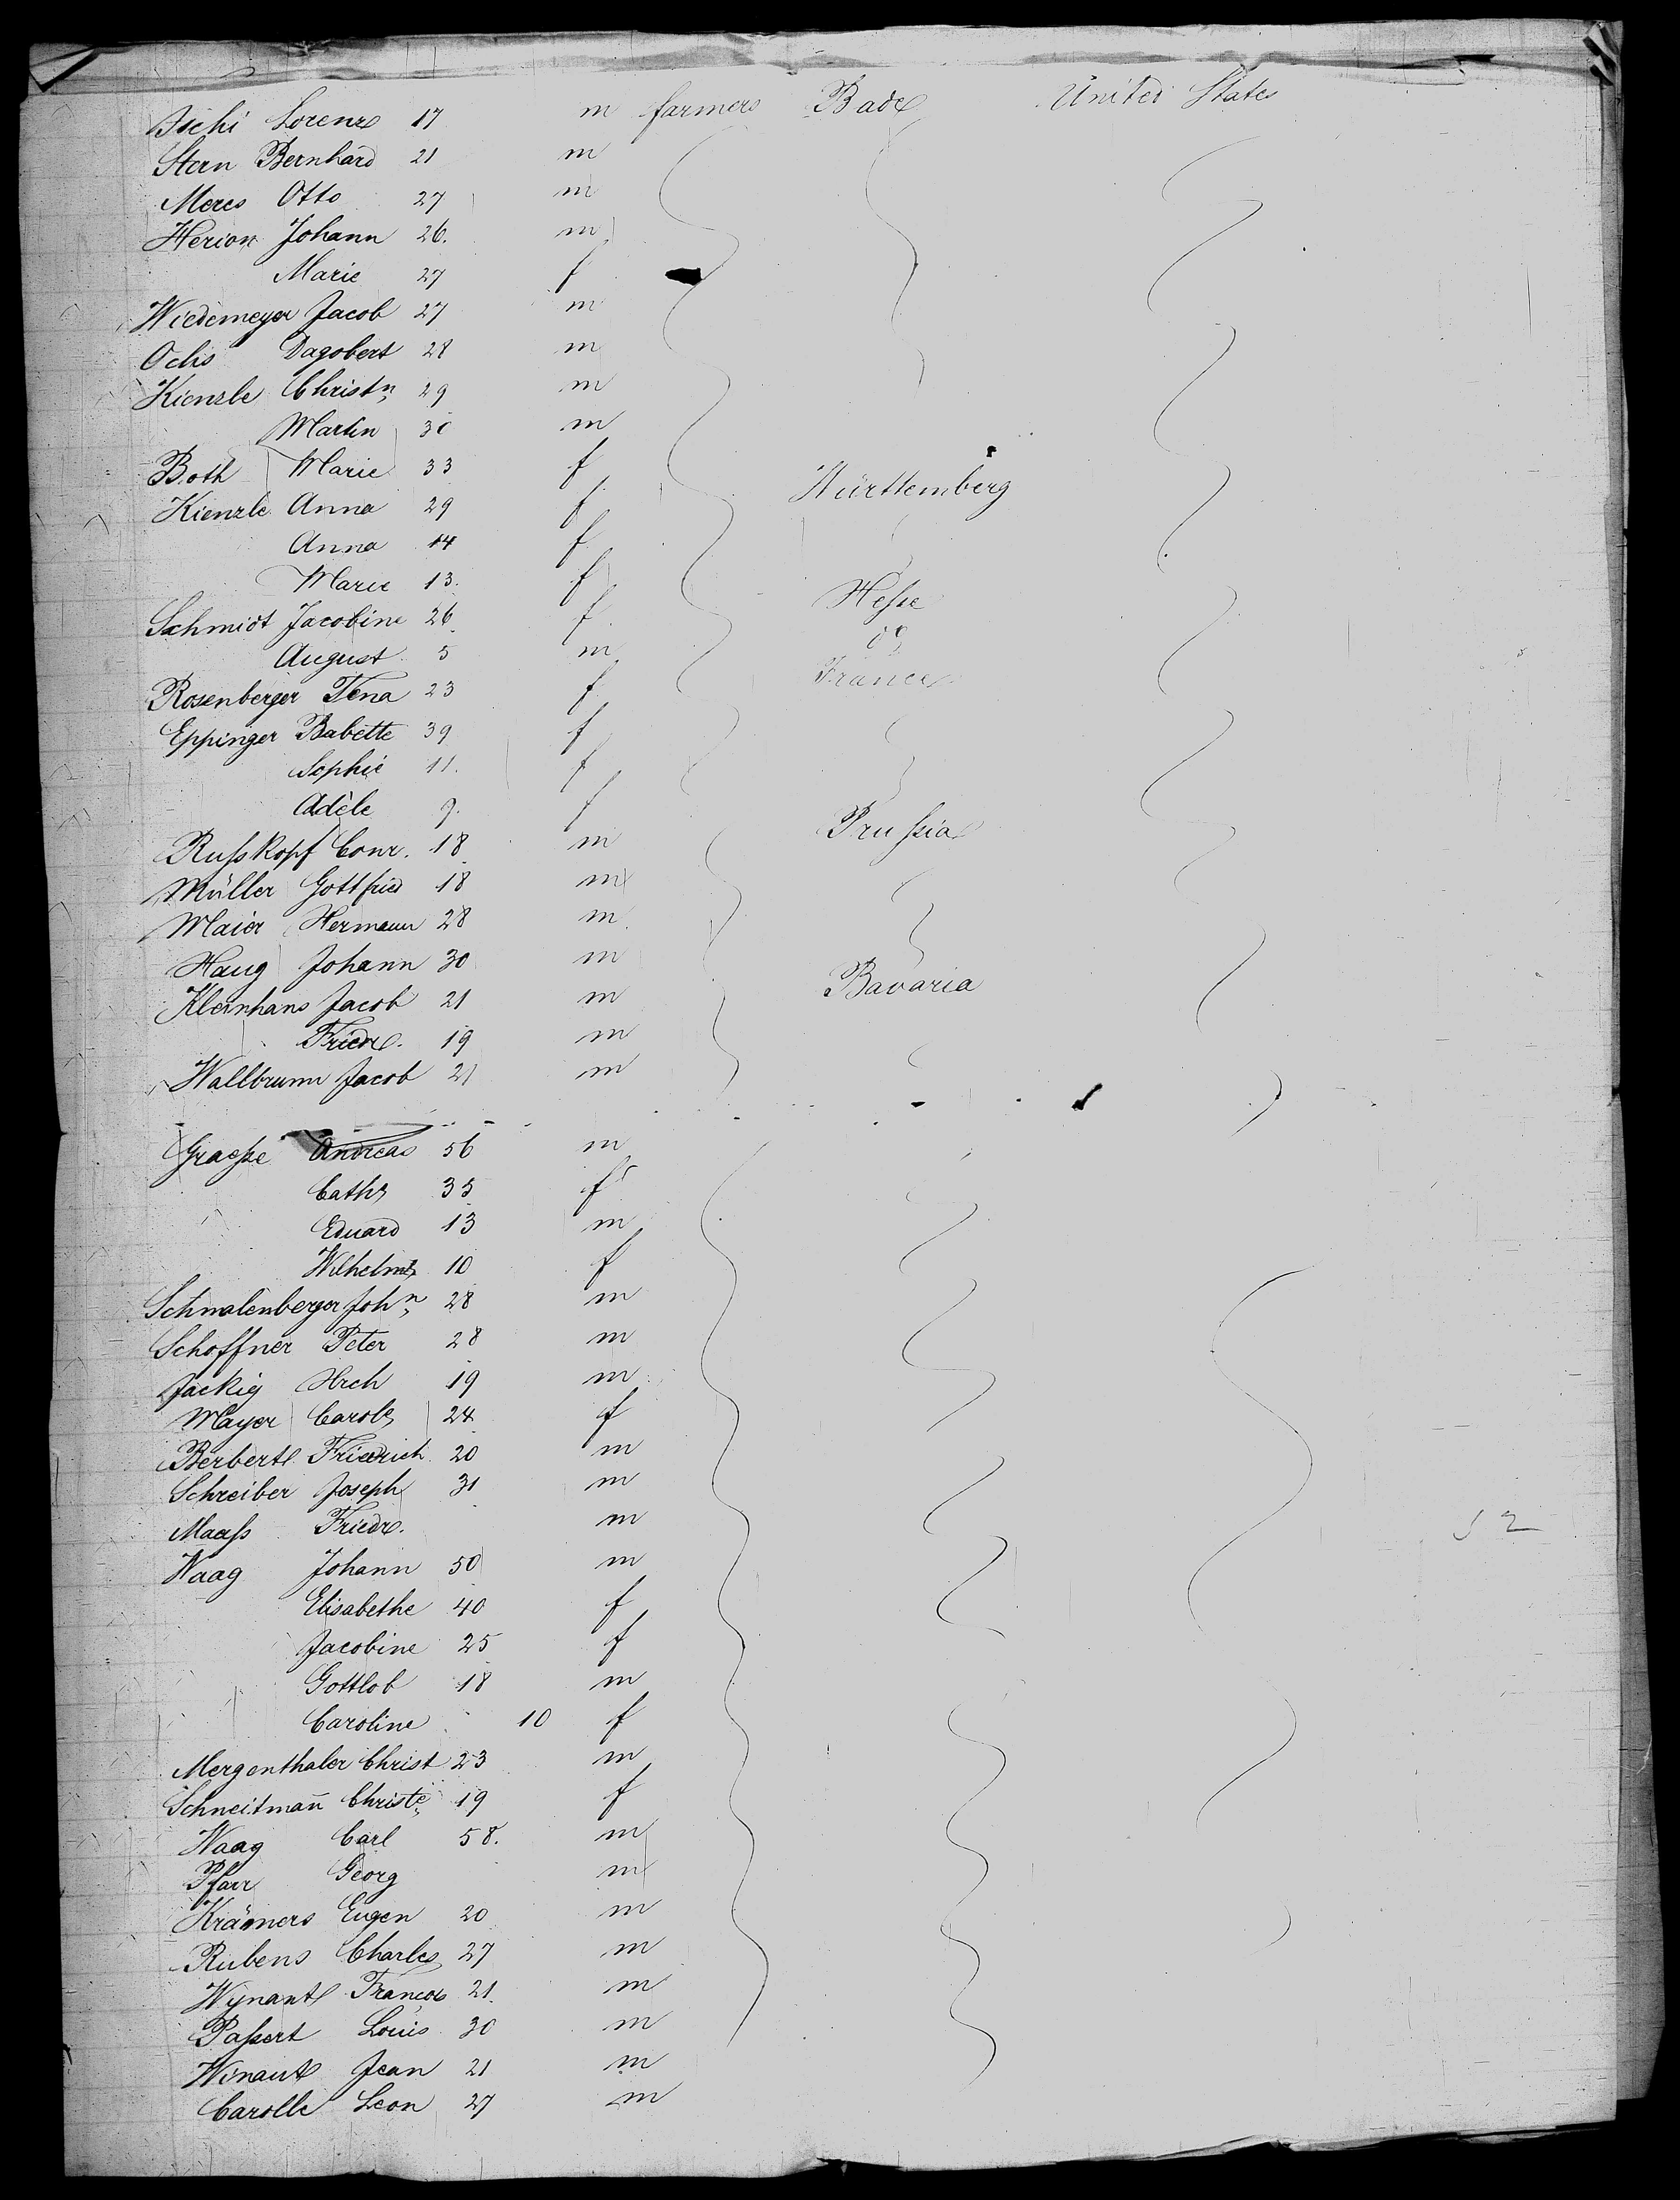 Ischi Lorenz 17 m farmers Bade United States
Stern Bernhard 21 m
Meres Otto 27 m
Herion Johann 26. m
Marie 27 f
Wiedemeyer Jacob 27 m
Ochs Dagobert 28 m
Kienzle Christn 29 m
Martin 30 m
Both Marie 33 f Württemberg
Kienzle Anna 29 f
Anna 14 f
Marie 13. f Hesse
Schmidt Jacobine 26 f do
August 5 m France
Rosenberger Tena 23 f
Eppinger Babette 39 f
Sophie 11. f
Adèle 9. f Prussia
Russkopf Conr. 18 m
Müller Gottfried 18 m
Maier Hermann 28 m
Haug Johann 30 m Bavaria
Kleinhans Jacob 21 m
Friedr. 19 m
Wallbrunn Jacob 21 m
Graesse Andreas 56 m
Cath. 35 f
Eduard 13 m
Wilhelm 10 f
Schmalenberger John 28 m
Schoffner Peter 28 m
Jackig Hrch 19 m
Mayer Carol 24 f
Berbert Friedrich 20 m
Schreiber Joseph 31 m
Maass Friedr. m 52
Waag Johann 50 m
Elisabethe 40 f
Jacobine 25 f
Gottlob 18 m
Caroline 10 f
Mergenthaler Christ 23 m
Schneitmañ Christe 19 f
Waag Carl 58. m
Pfarr Georg m
Krämers Eugen 20 m
Rubens Charles 27 m
Wynant François 21. m
Passert Louis 30 m
Winaut Jean 21 m
Carolle Leon 27 m